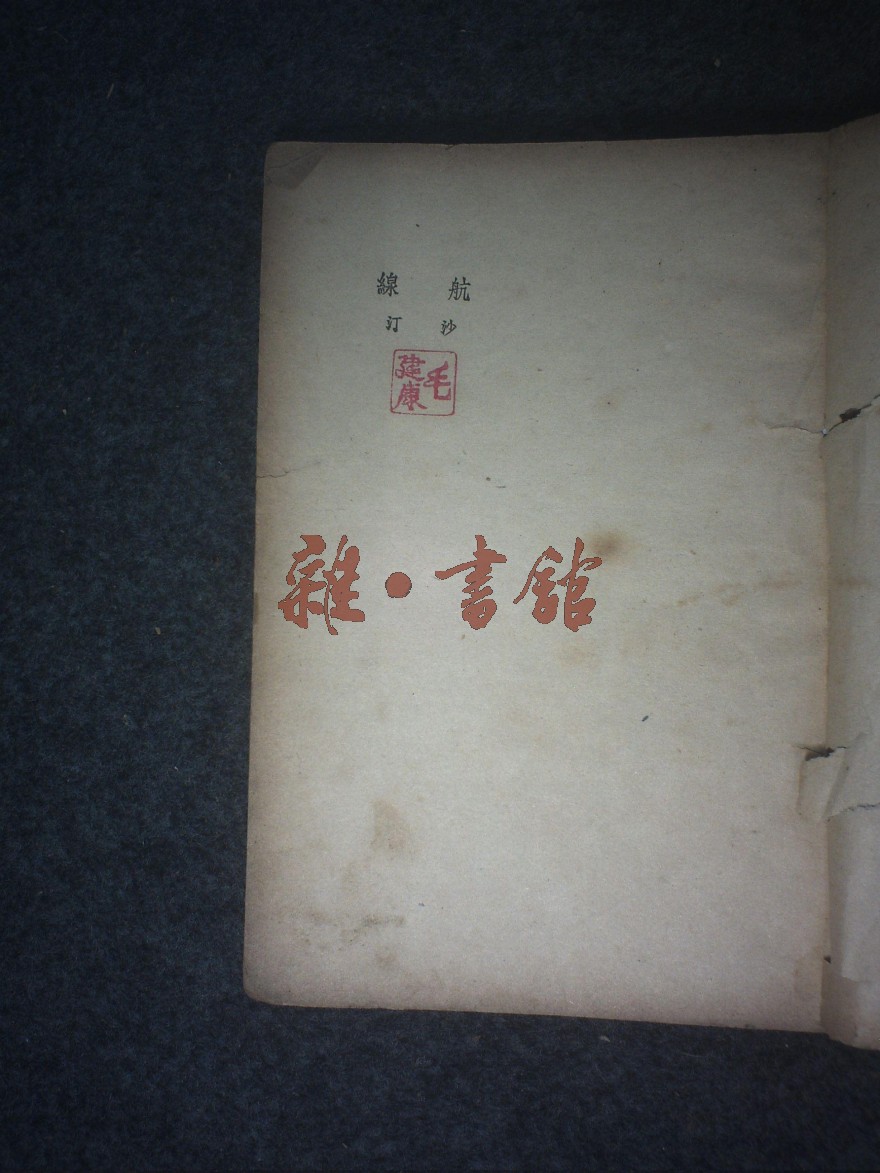 航線
沙汀
毛建康
雜·書館